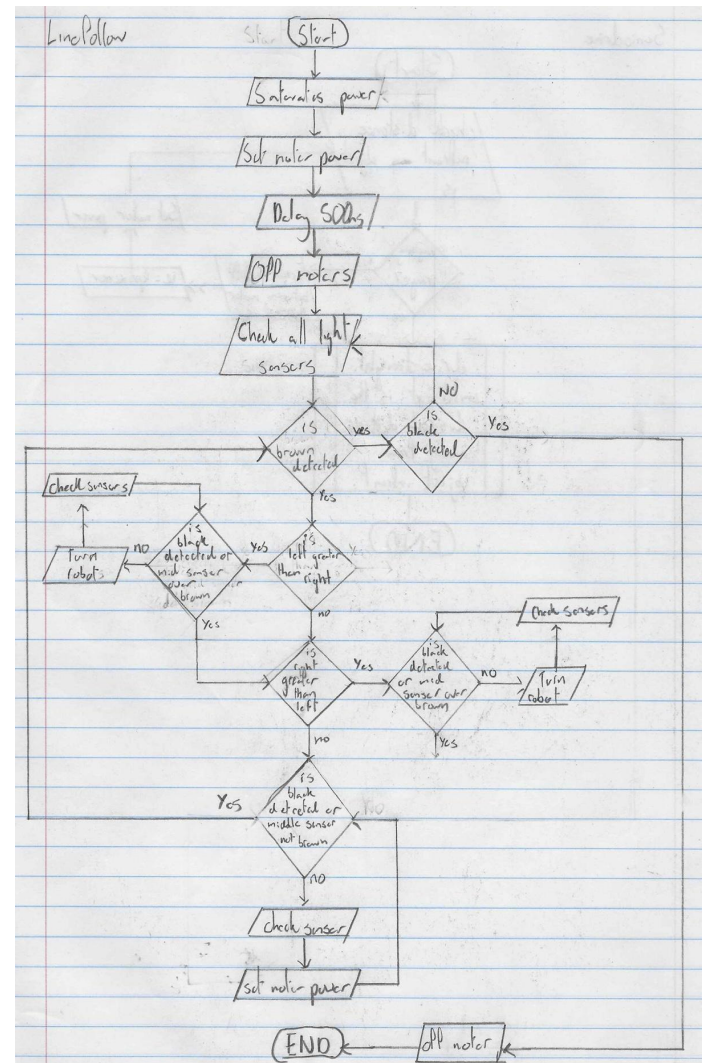 LineFollow
Start
power
Set motor power
Delay 500ms
Off motors
Check all light
sensors
NO
is
brown
detected
yes
is
black
detected
Yes
Yes
check sensors
is
black
detected or
mid sensor
over
brown
no
Turn
robot
Yes
is
left greater
than
right
Yes
no
check sensors
is
right
greater
than
left
Yes
is
black
detected
or mid
sensor over
brown
no
Turn
robot
Yes
no
Yes
is
black
detected or
middle sensor
not brown
no
check sensor
set motor power
END
off motor